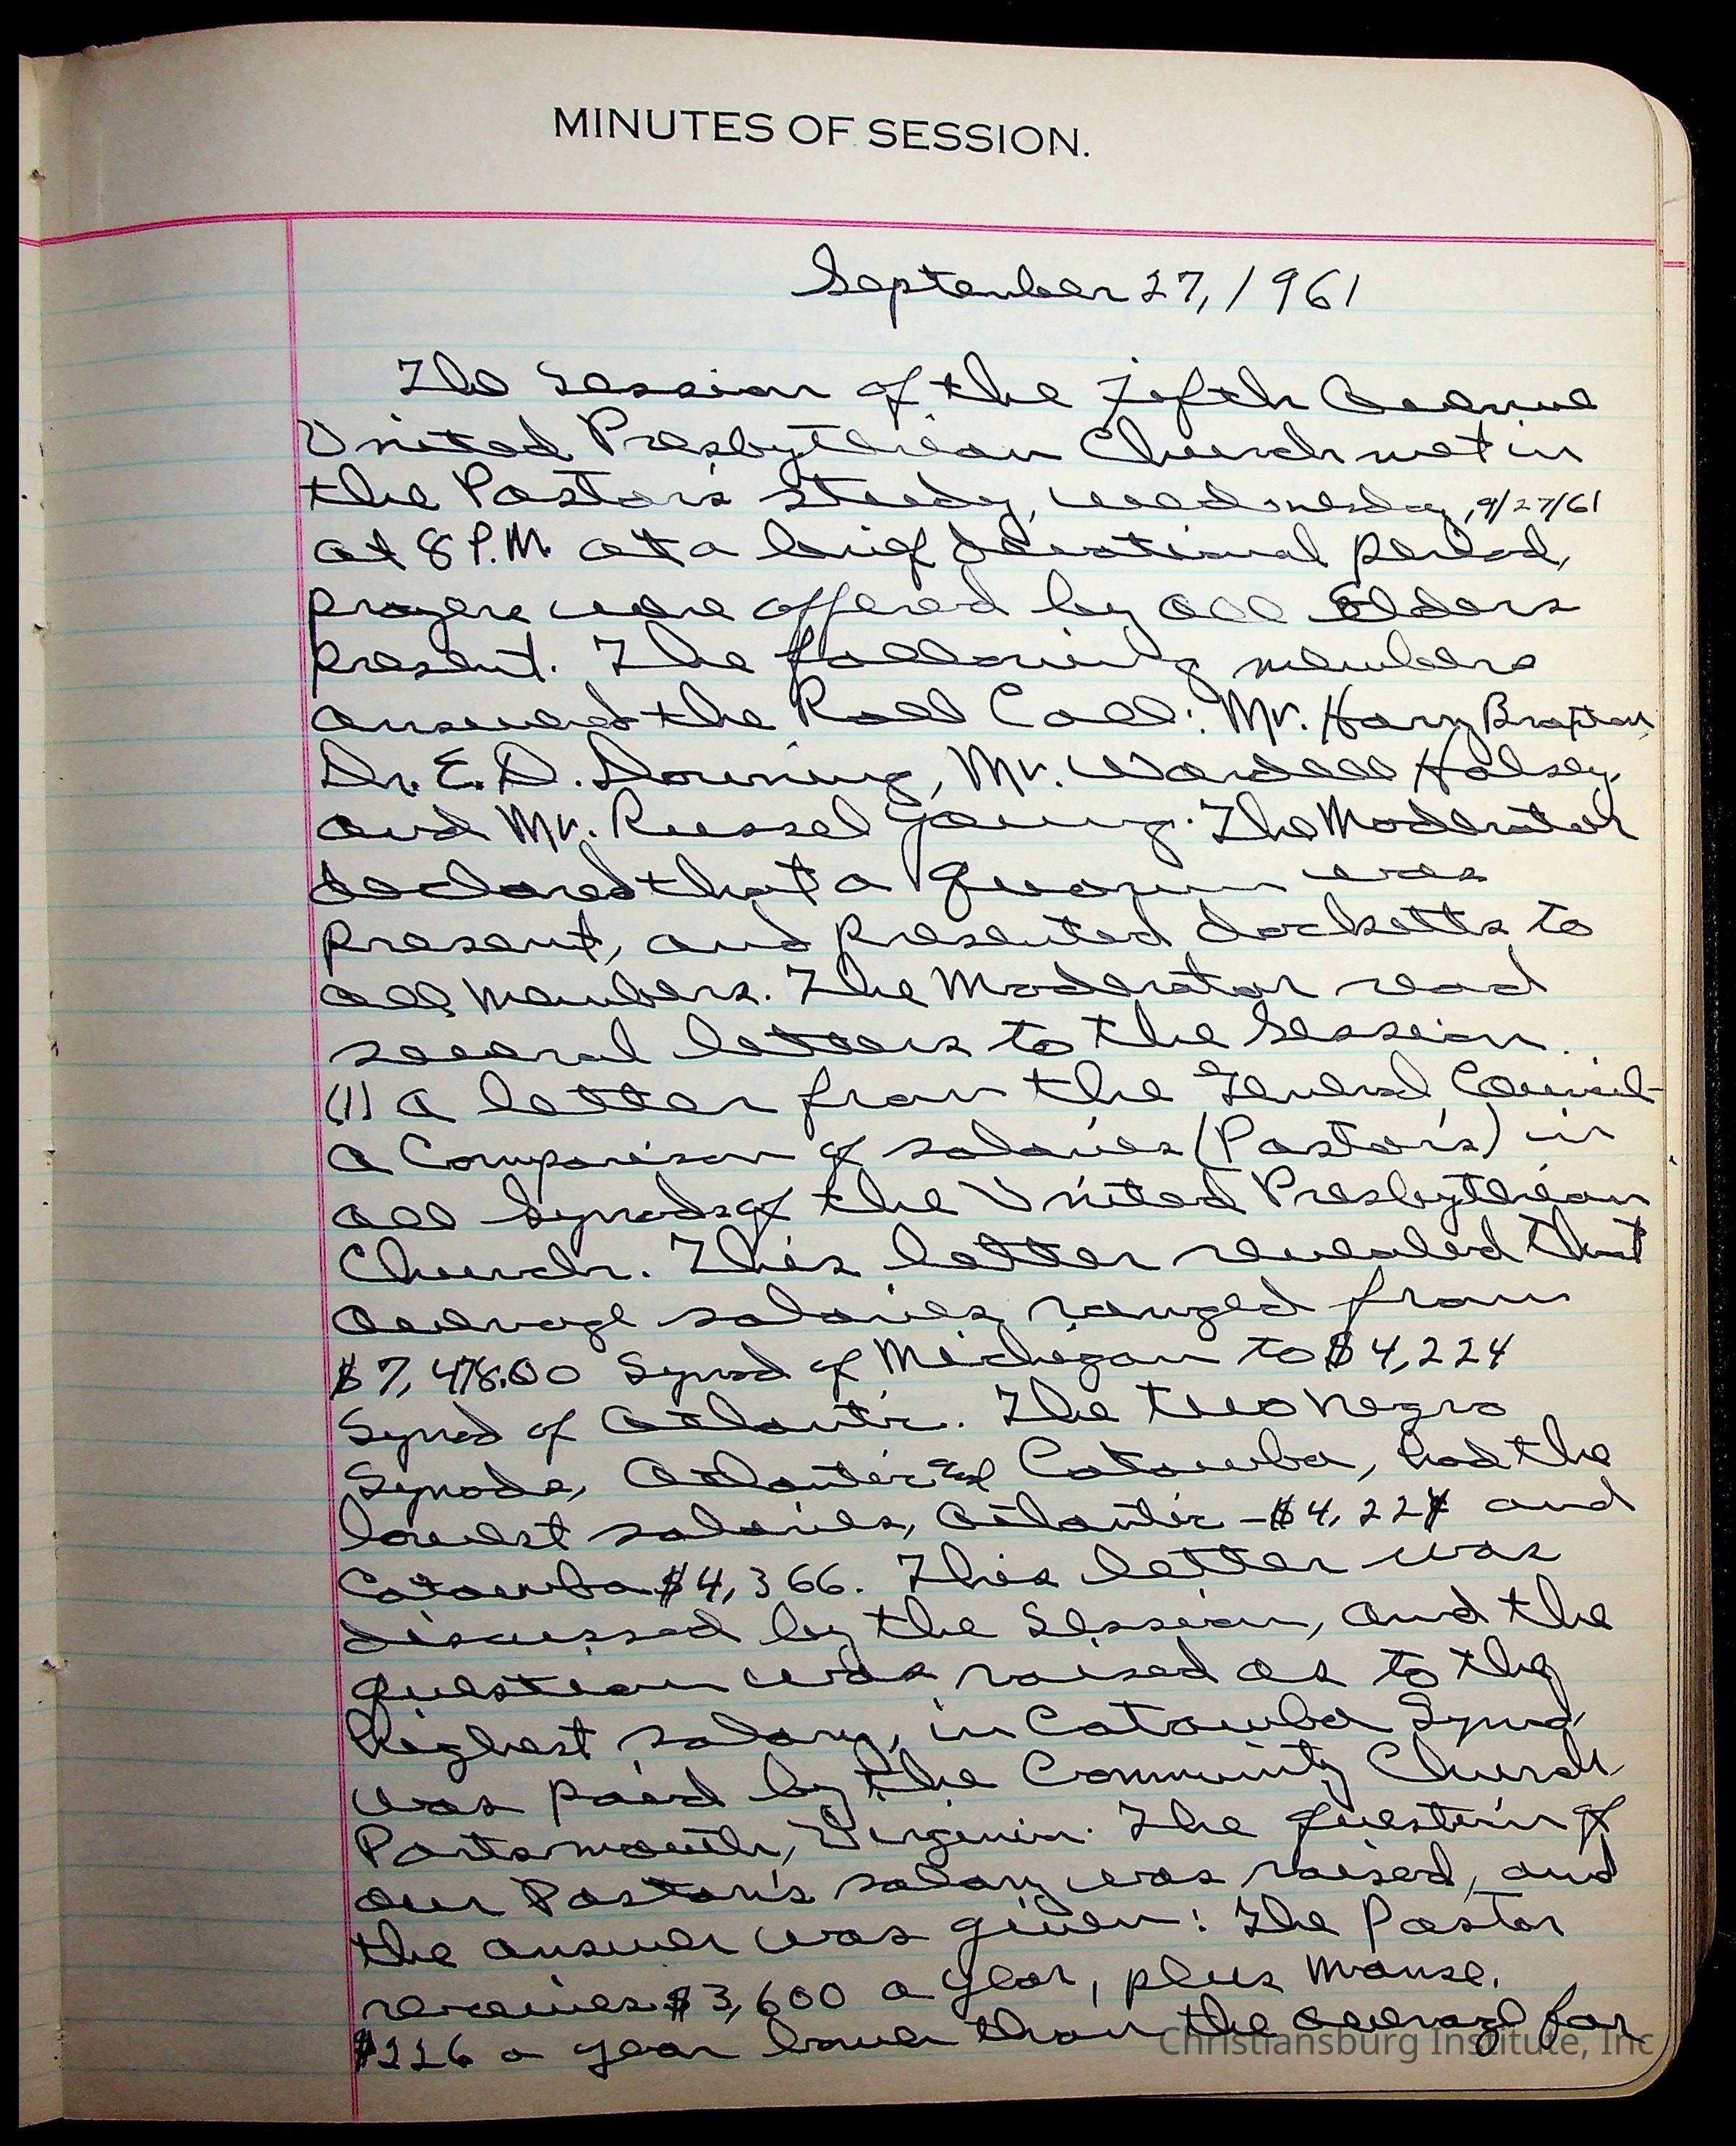 MINUTES OF SESSION.
September 27, 1961
The Session of the Fifth Avenue
United Presbyterian Church met in
the Pastor's study, Wednesday, 9/27/61
at 8 P.M. at a brief devotional period,
prayers were offered by all Elders
present. The following members
answered the Roll Call: Mr. Harry Braxton,
Dr. E. D. Downing, Mr. Wardell Halsey
and Mr. Russel Young. The Moderator
declared that a quorum was
present, and presented docketts to
all members. The Moderator read
several letters to the Session.
(1) A letter from the General Council-
A Comparison of salaries (Pastor's) in
all Synods of the United Presbyterian
Church. This letter revealed that
average salaries ranged from
$7,478.00 Synod of Michigan to $4,224
Synod of Atlantic. The two Negro
Synods, Atlantic and Catawba, had the
lowest salaries, Atlantic - $4,224 and
Catawba $4,366. This letter was
discussed by the Session, and the
question was raised as to the
highest salary, in Catawba Synod
was paid by the Community Church
Portsmouth, Virginia. The question of
our Pastor's salary was raised, and
the answer was given: The Pastor
receives $3,600 a year, plus manse.
a year lower than the average for
Christiansburg Institute, Inc